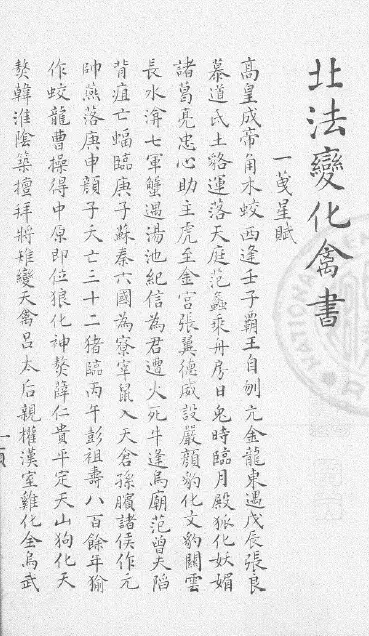 北法變化禽書
一箋星賦
高皇成帝角木蛟西逢壬子霸王自刎亢金龍東遇戊辰張良
慕道氐土貉運落天庭范蠡乘舟房日兔時臨月殿狐化妖媚
諸葛亮忠心助主虎至金宮張翼德威設嚴顏豹化文豹關雲
長水渰七軍蟹遇湯池紀信為君遭火死牛逢烏廟范曾夭陷
背疽亡蝠臨庚子蘇秦六國為寮宰鼠入天倉孫臏諸侯作元
帥燕落庚申顏子夭亡三十二猪臨丙午彭祖壽八百餘年㺄
作蛟龍曹操得中原即位狼化神獒薛仁貴平定天山狗化天
獒韓淮陰築壇拜將雉變天禽呂太后親權漢室雞化金烏武